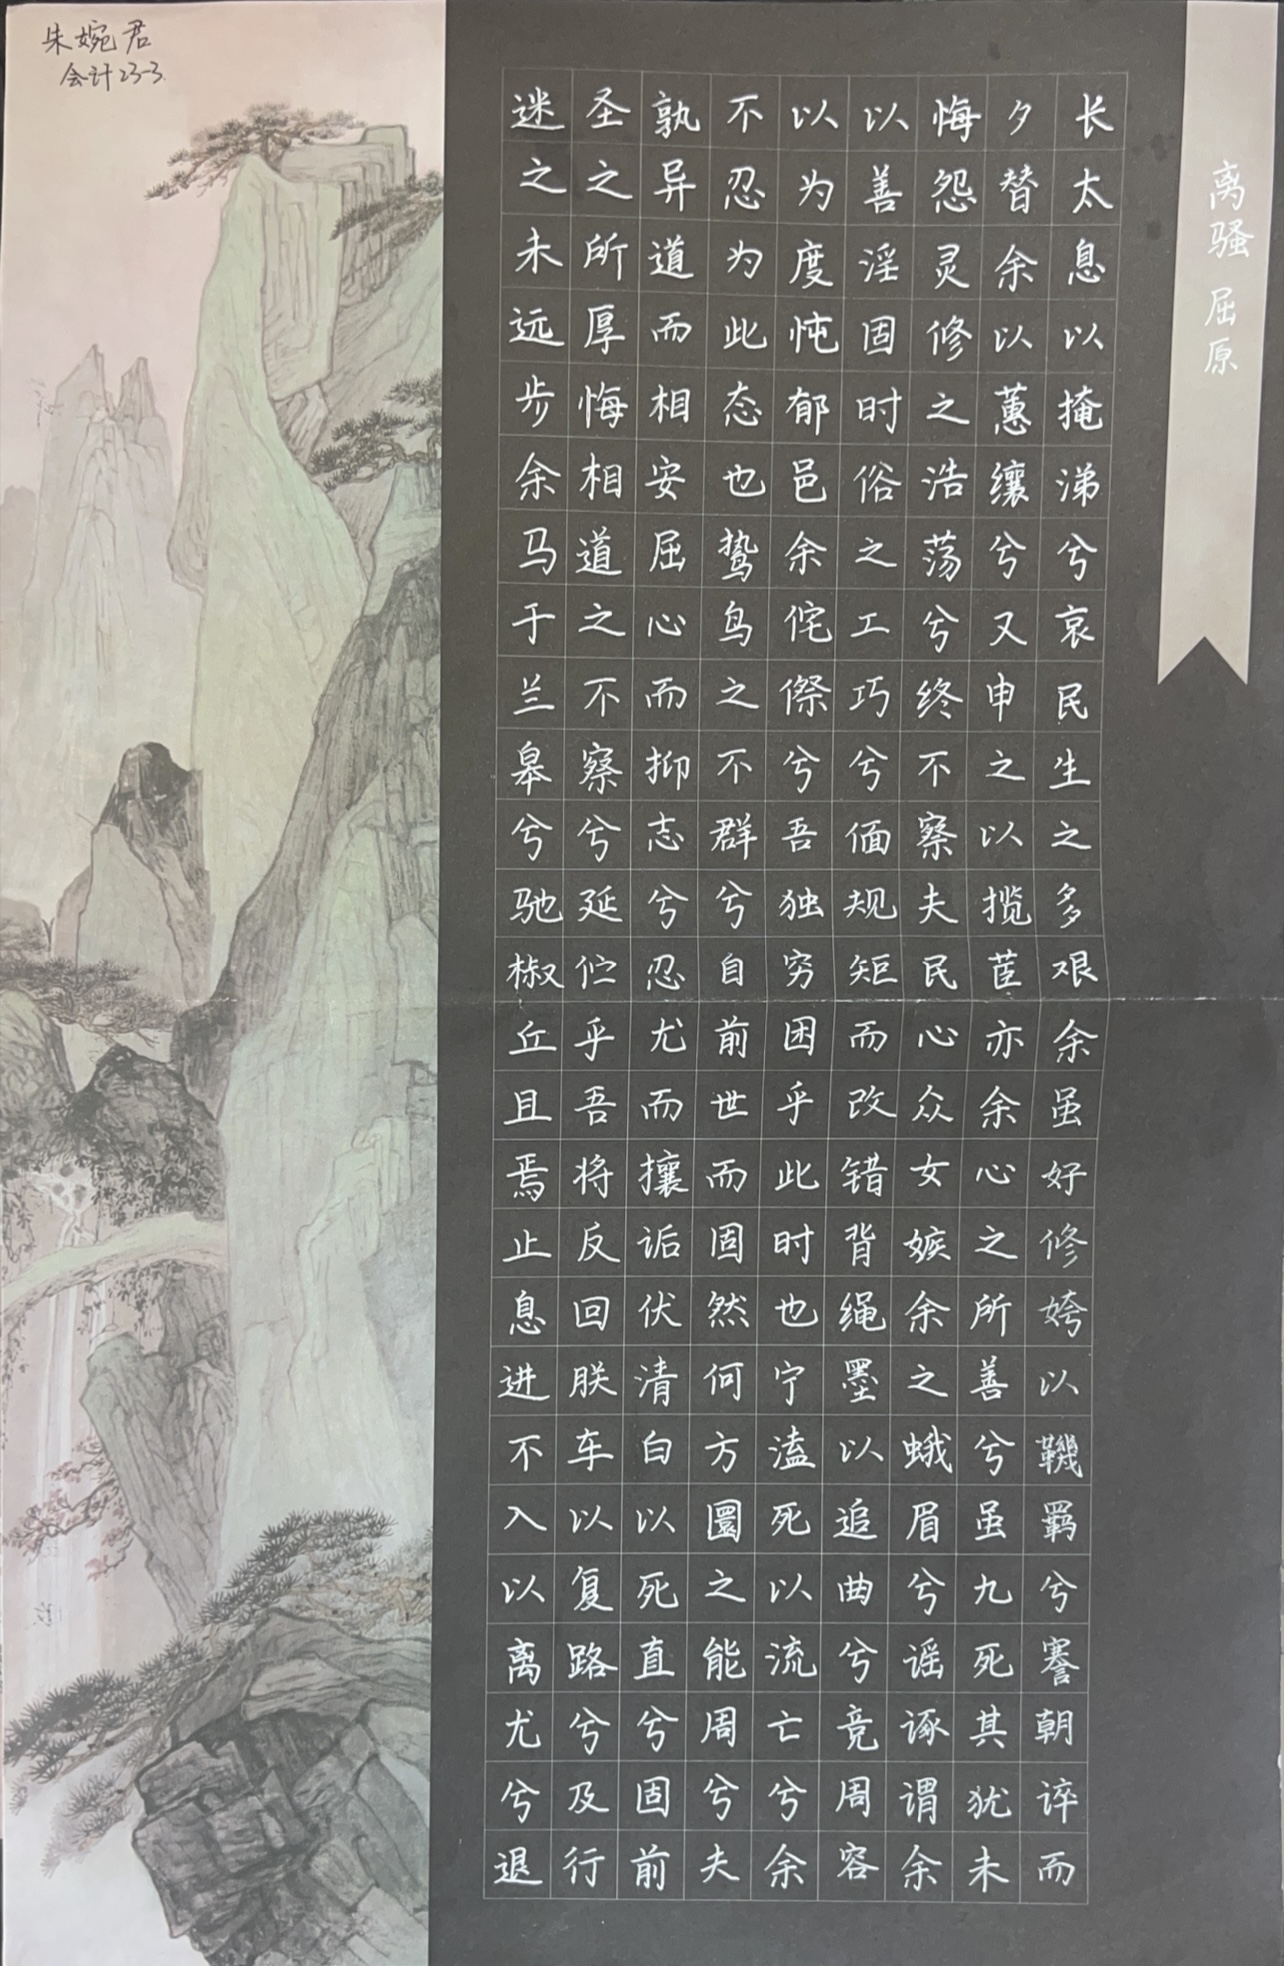 朱婉君
会计23-3
离骚 屈原
长太息以掩涕兮哀民生之多艰余虽好修姱以鞿羁兮謇朝谇而
夕替余以蕙纕兮又申之以揽茝亦余心之所善兮虽九死其犹未
悔怨灵修之浩荡兮终不察夫民心众女嫉余之蛾眉兮谣诼谓余
以善淫固时俗之工巧兮偭规矩而改错背绳墨以追曲兮竞周容
以为度忳郁邑余侘傺兮吾独穷困乎此时也宁溘死以流亡兮余
不忍为此态也鸷鸟之不群兮自前世而固然何方圜之能周兮夫
孰异道而相安屈心而抑志兮忍尤而攘诟伏清白以死直兮固前
圣之所厚悔相道之不察兮延伫乎吾将反回朕车以复路兮及行
迷之未远步余马于兰皋兮驰椒丘且焉止息进不入以离尤兮退